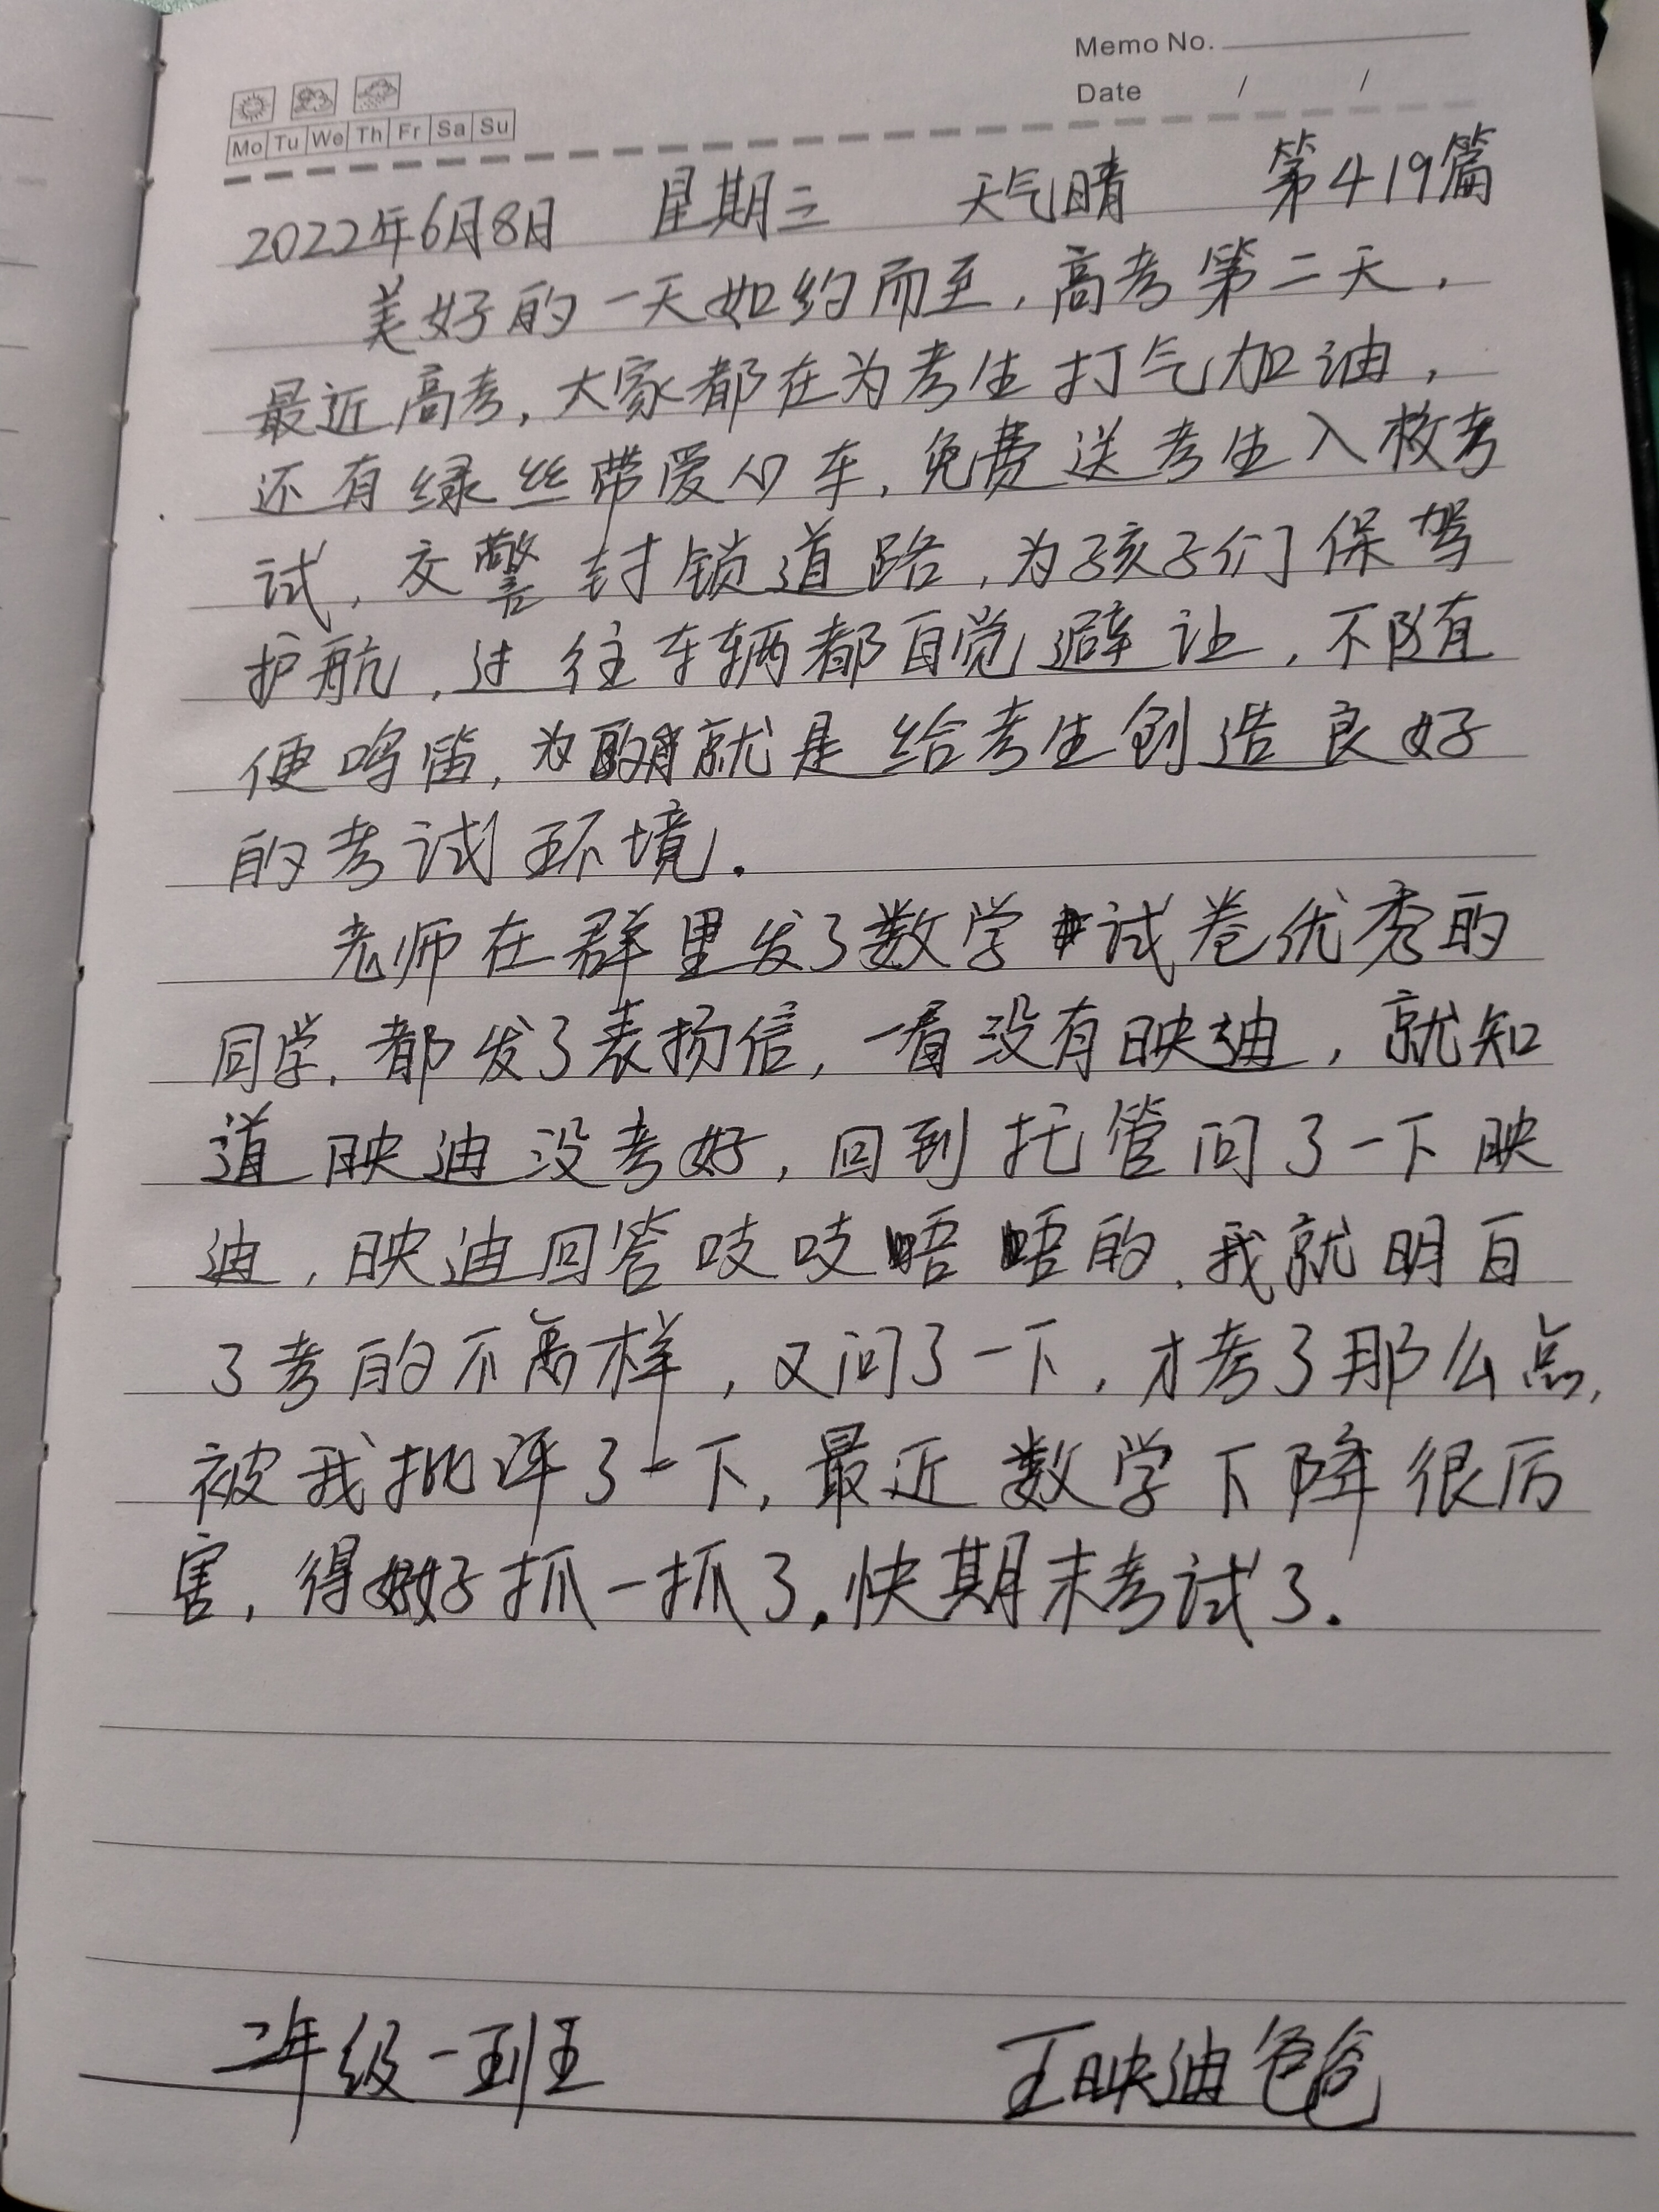 Memo No.
Date / /
Mo Tu We Th Fr Sa Su
2022年6月8日 星期三 天气晴 第419篇
美好的一天如约而至,高考第二天,
最近高考,大家都在为考生打气加油,
还有绿丝带爱心车,免费送考生入校考
试,交警封锁道路,为孩子们保驾
护航,过往车辆都自觉避让,不随
便鸣笛,为就是给考生创造良好
的考试环境.
老师在群里发了数学试卷优秀的
同学,都发了表扬信,一看没有映迪,就知
道映迪没考好,回到托管问了一下映
迪,映迪回答吱吱唔唔的,我就明白
了考的不咋样,又问了一下,才考了那么点,
被我批评了一下,最近数学下降很厉
害,得好好抓一抓了.快期末考试了.
二年级一班 王映迪爸爸